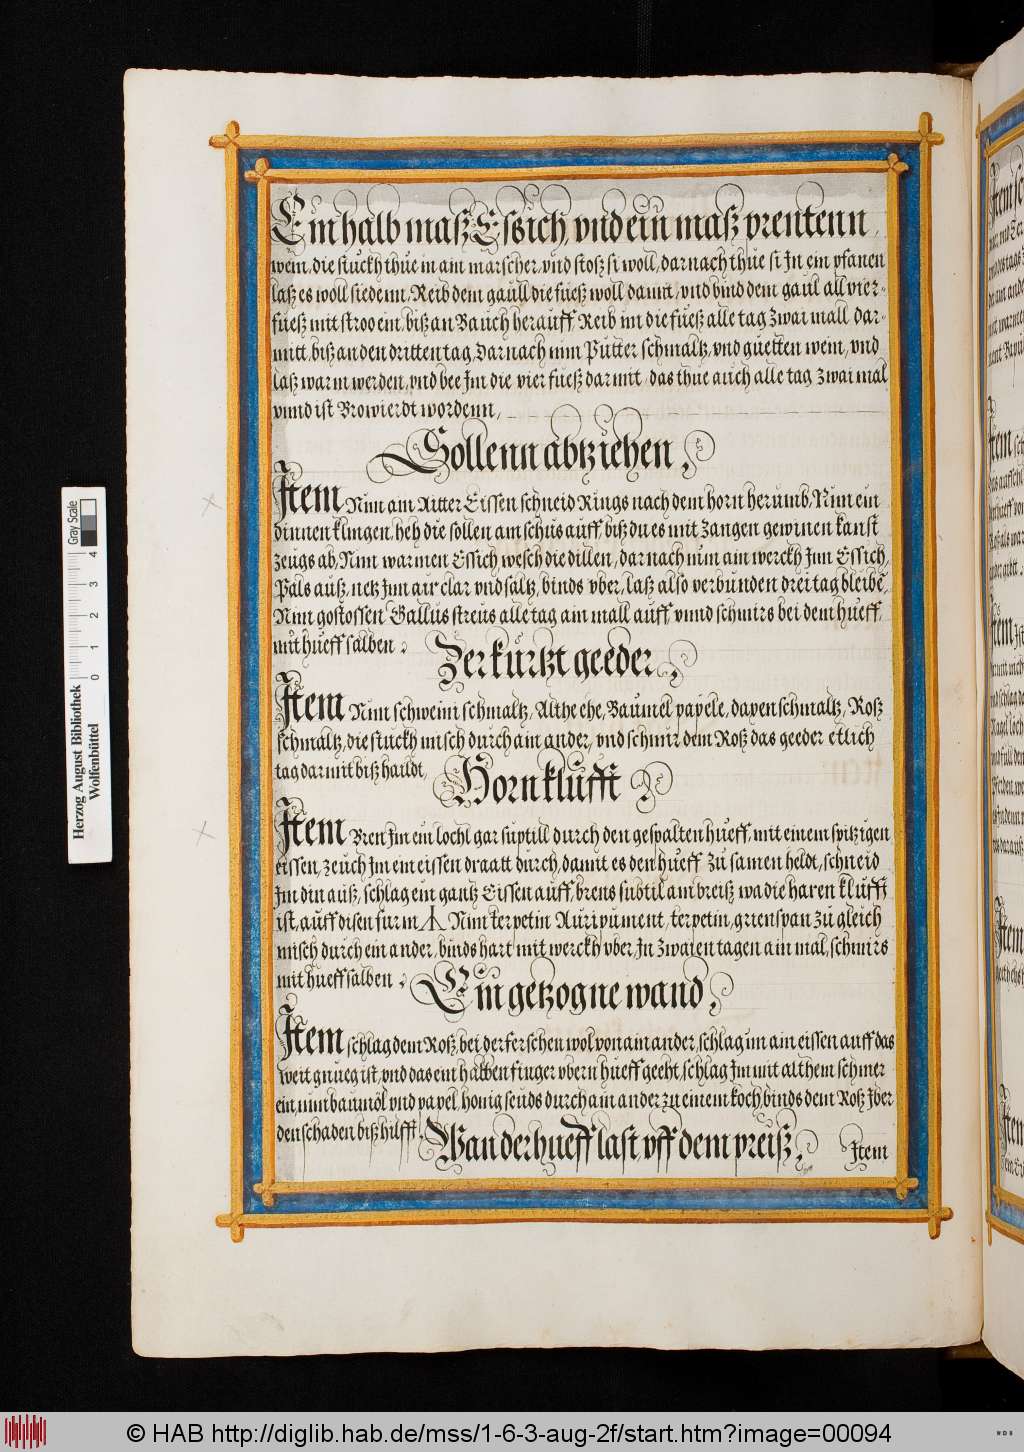 Ein halb masz Essich, vnd ein masz prentenn
wein, die stuckh thue in ain marscher, vnd stosz si woll, darnach thue si In ein pfanen
lasz es woll siedenn, Reib dem gaull die fuesz woll damit, vnd bind dem gaul all vier-
fuesz mit stroo ein, bisz an Bauch herauff, Reib im die fuesz alle tag Zwai mall dar-
mitt, bisz an den dritten tag, Darnach nim Putter schmaltz, vnd guetten wein, vnd
lasz warm werden, vnd bee Im die vier fuesz darmit, das thue auch alle tag zwai mal
vnnd ist Browierdt wordenn,
Sollenn abtziehen
Item Nim ain Ritter Eissen schneid Rings nach dem horn herumb, Nim ein
dinnen klingen, heb die sollen am schus auff, bisz du es mit Zangen gewinen kanst
zeugs ab, Nim warmen Essich wesch die dillen, darnach nim ain werckh Inn Essich,
Pals ausz, netz Inn air clar vnd saltz, binds vber, lasz also verbunden drei tag bleibē,
Nim gostossen Gallus streus alle tag ain mall auff, vnnd schmirs bei dem hueff,
mit hueff salben
Zerkurtzt geeder
Item Nim schweini schmaltz, Althe ehe, Baumel papele, daxen schmaltz, Rosz
schmaltz, die stuckh misch durch ain ander, vnd schmir dem Rosz das geeder etlich
tag darmit bisz haildt,
Hornklufft
Item Bren Im ein lochl gar suptill durch den gespalten hueff, mit einem spitzigen
eissen, zeuch Im ein eissen draatt durch, damit es den hueff zu samen heldt, schneid
Im din ausz, schlag ein gantz Eissen auff, brens subtil am breisz wa die haren klufft
ist, auff disen furm Nim terpetin Auripiiment, terpetin, grienspan zu gleich
misch durch ein ander, binds hart mit werckh vber, In zwaien tagen ain mal, schmirs
mit hueff salben
Ein getzogne wand
Item schlag dem Rosz, bei der ferschen wol von ain ander, schlag im ain eissen auff das
weit gnueg ist, vnd das ein halben finger vbern hueff geeht, schlag Im mit althem schmer
ein, nim baumöl vnd papel, honig seuds durch ain ander zu einem koch, binds dem Rosz Iber
den schaden bisz hilfft,
Wan der hueff last vff dem preisz,
Item
Herzog August Bibliothek
Wolfenbüttel
Gray Scale
0 1 2 3 4
© HAB http://diglib.hab.de/mss/1-6-3-aug-2f/start.htm?image=00094